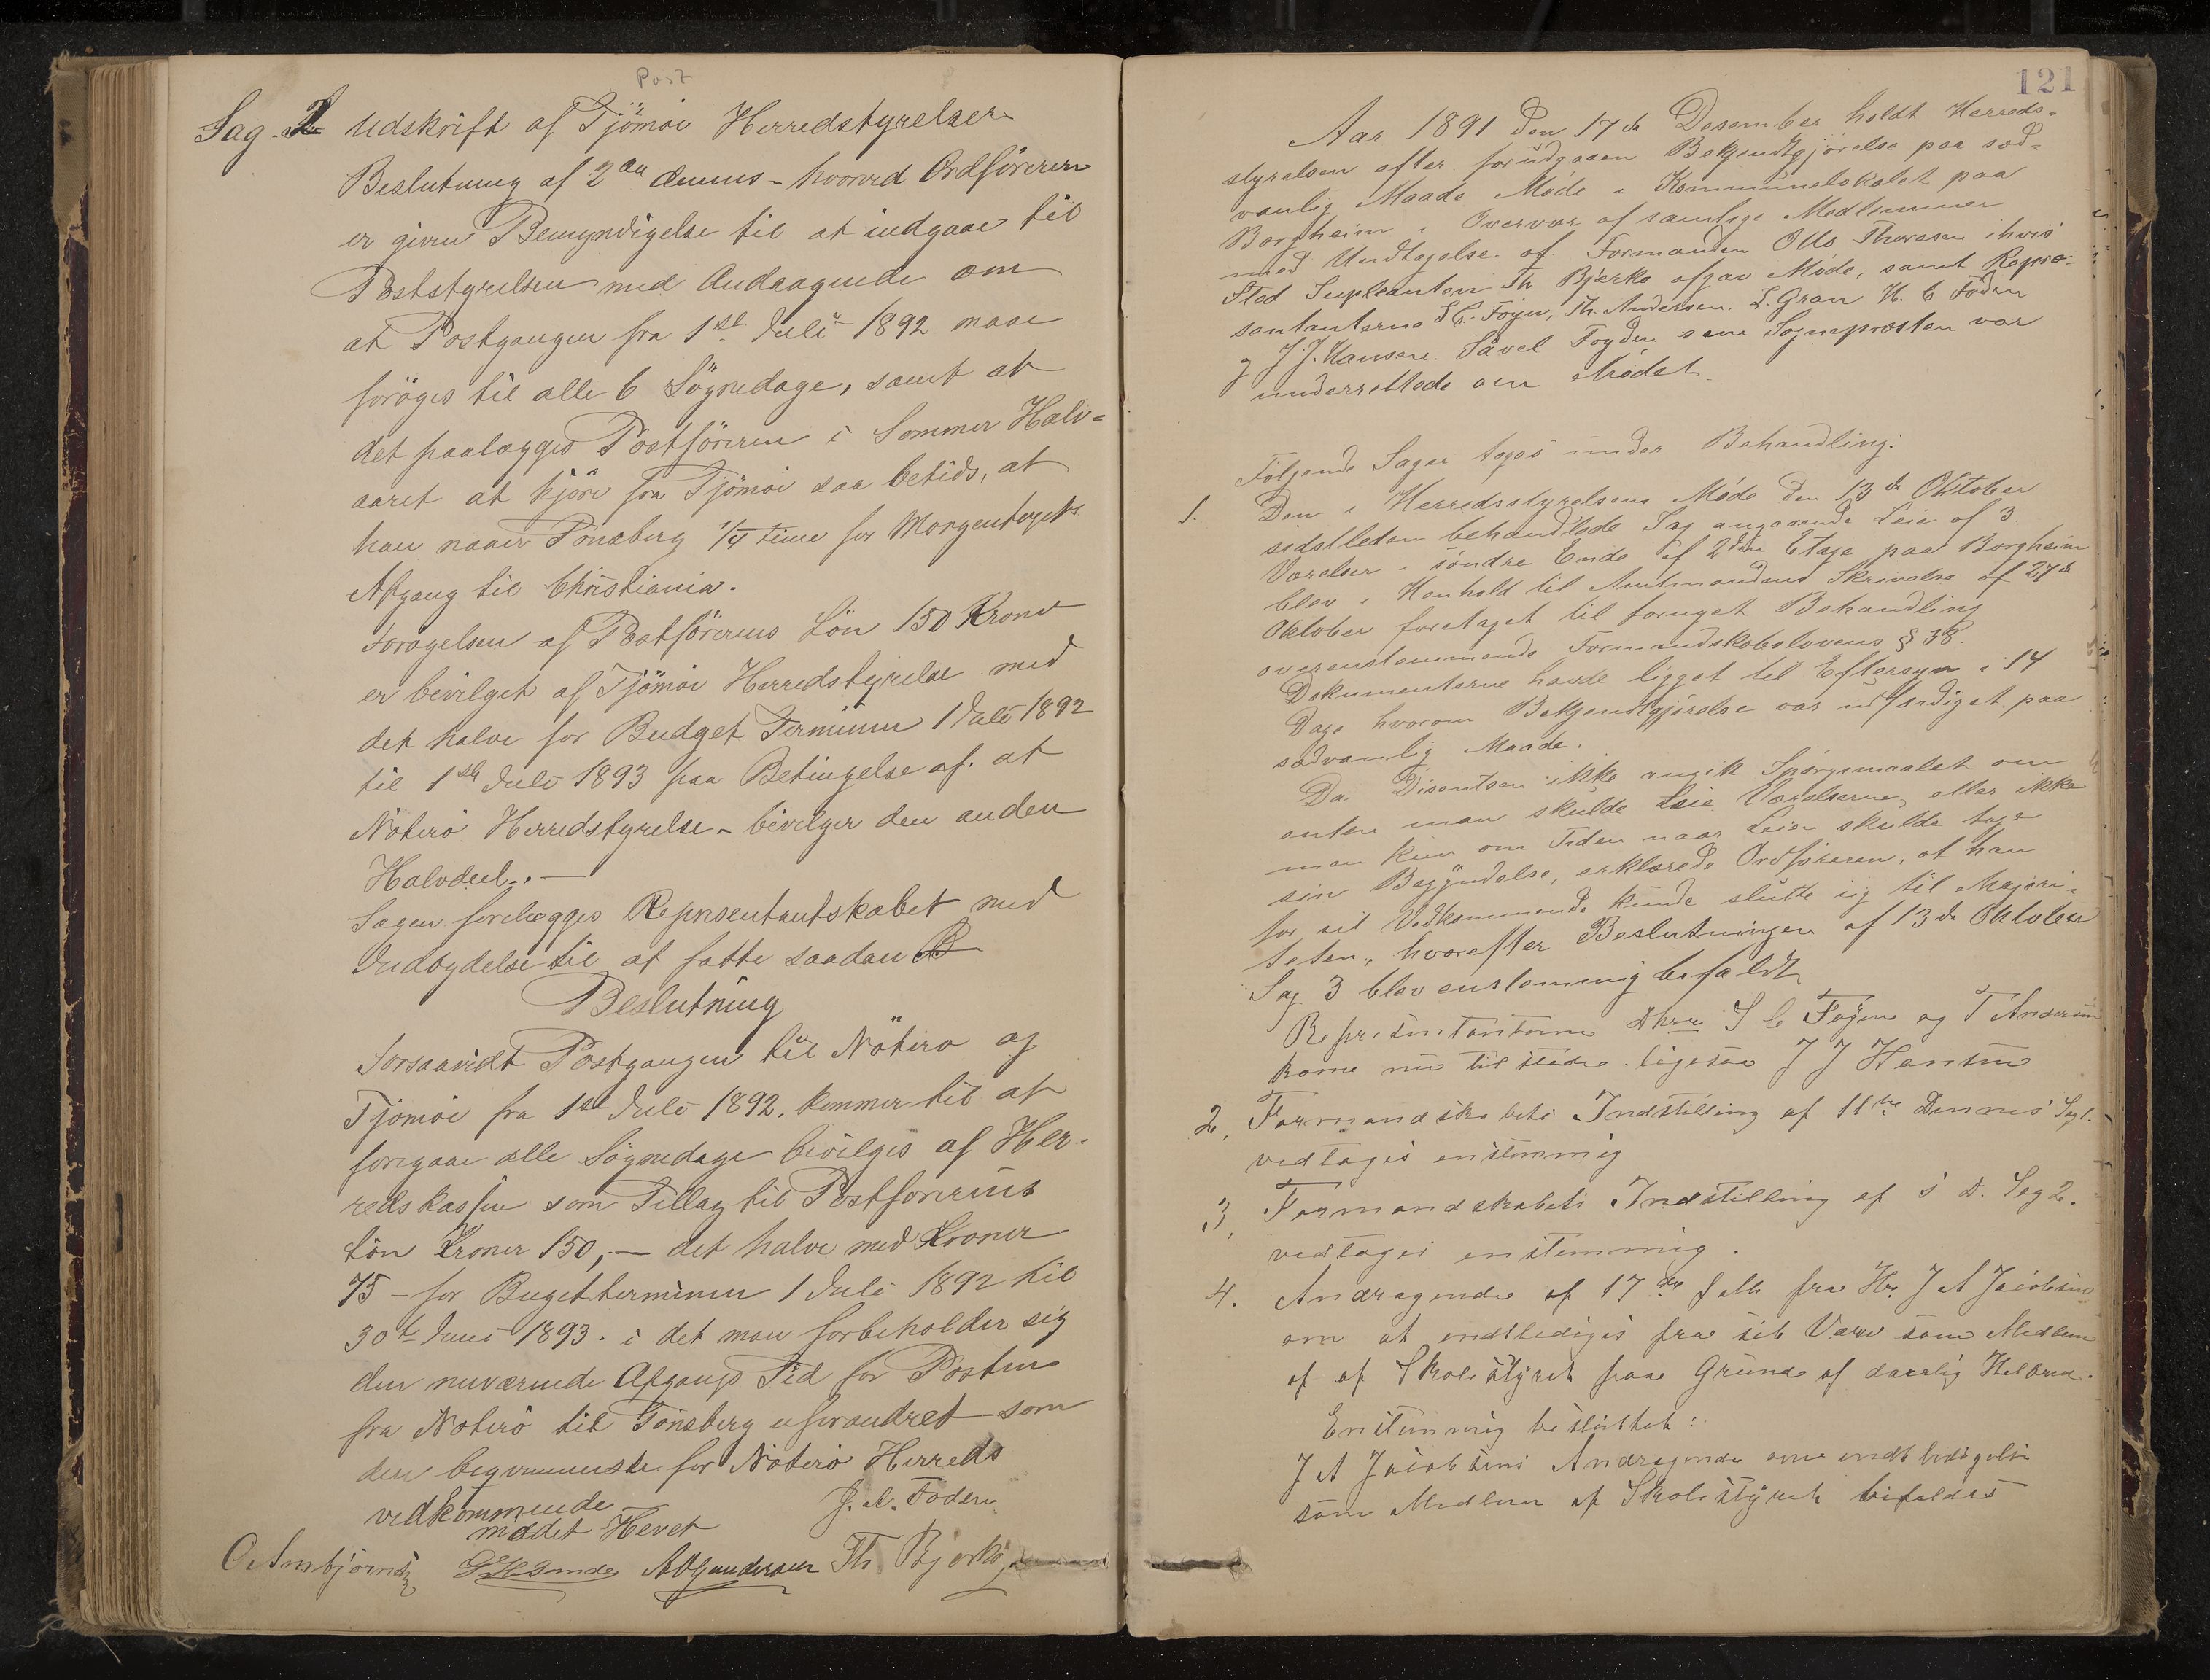 Post
Sag. 2 Udskrift af Tjömöe Herredstyrelser
Beslutning af 2den dennes - hvorved Ordföreren
er given Bemyndigelse til at indgaae til
Poststyrelsen med Andragende om
at Postgangen fra 1st Juli 1892 maae
foröges til alle 6 Sögnedage, samt at
det paalægges Postföreren i Sommer Halv=
aaret at kjöre fra Tjömöe saa betids, at
han naaer Tönsberg 1/4 time for Morgentogets
Afgang til Christiania.
Forögelsen af Postförerens Lön 150 Krone
er bevilget af Tjömöe Herredstyrelse med
det halve for Budget Terminen 1 Juli 1892
til 1st Juli 1893 paa Betingelse af. at
Nöterö Herredstyrelse - bevilger den anden
Halvdeel. -
Sagen forelægges Representantskabet med
Indbydelse til at fatte saadan B
Beslutning
Forsaavidt Postgangen til Nöterö og
Tjömöe fra 1st Juli 1892. kommer til at
foregaae alle Sögnedage bevilges af Her-
redskassen som Tillæg til Postförerens
Lön Kroner 150,- det halve med Kroner
75 - for Bugetterminen 1 Juli 1892 til
30te Juni 1893. i det man forbeholder sig
den nuværende Afgangs Tid for Posten
fra Nöterö til Tönsberg uforandret som
den beqvemmeste for Nöterö Herreds
vedkommende
mödet Hevet J. A. Foden
O. Arnbjörnsen A O Gundersen Th. Bjerkö
121
Aar 1891 den 17de Desember holdt Herreds-
styrelsen efter forudgaaen Bekjendtgjörelse paa sæd-
vanlig Maade Möde i Kommunelokalet paa
Borgheim i Overvær af samlige Medlemmer
med Undtagelse af Formanden Otto Thoresen i hvis
Sted Supleanten Th Bjerke afgav Möde, samt Repræ-
sentanterne S C. Föyn, Th. Andersen. L. Gran H. C Foden
og J. J. Hansen. Såvel Fogden som Sogneprästen var
underrettede om Mödet.
Fölgende Sager toges under Behandling:
1. Den i Herredsstyrelsens Möde den 13de Oktober
sidstleden behandlede Sag angaaende Leie af 3
Værelser i söndre Ende af 2den Etage paa Borgheim
blev i Henhold til Amtmandens Skrivelse af 27de
Oktober foretaget til fornyet Behandling
overensstemmende Formandskabslovens § 38.
Dokumenterne havde ligget til Eftersyn i 14
Dage hvorom Bekjendtgjörelse var udfærdiget paa
sædvanlig Maade.
Da Disentsen ikke angik Spörgsmaalet om
enten man skulde Leie Værelserne, eller ikke
men kun om Tiden naar Leien skulde tage
sin Begyndelse, erklærede Ordföreren, at han
for sit Vedkommende kunde slutte sig til Majori-
teten, hvorefter Beslutningen af 13de Oktober
Sag 3 blev enstemmig bifaldt
Representanterne Dhrr S C Föyn og T Andersen
kome nu tilstede ligesaa J J Hansen
2. Formandskabets Indstilling af 11te Dennes Sag 1.
vedtages enstemmig
3. Formandskabets Indstilling af s D. Sag 2.
vedtages enstemmig.
4. Andragende af 17de f Mts fra Hr. J A Jacobsen
om at endtlediges fra sit Værv som Medlem
af af Skolestyret paa Grund af daarlig Helbred.
Enstemmig besluttet:
J A Jacobsens Andragende om endtledigelse
som Medlem af Skolestyret bifaldes